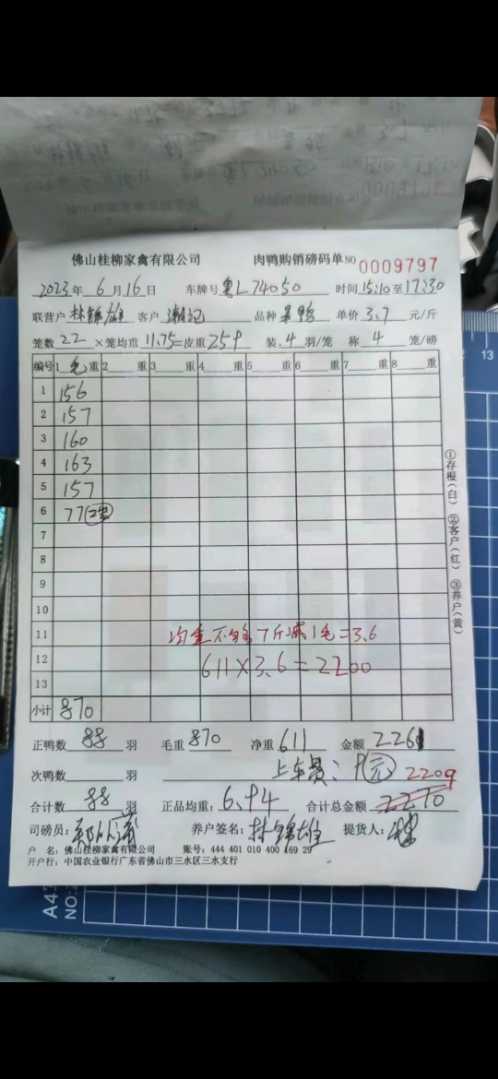 佛山桂柳家禽有限公司 肉鸭购销磅码单 NO 0009797
2023年 6月16日 车牌号 粤L74050 时间 15:10至17:30
联营户 林锦雄 客户 潮记 品种 单价 3.7 元/斤
笼数 22 ×笼均重 11.75=皮重 259 装 4 羽/笼 称 4 笼/磅
编号 1 毛重 2 重 3 重 4 重 5 重 6 重 7 重 8 重
1 156
2 157
3 160
4 163
5 157
6 77
7
8
9
10
11 均重不够7斤减1毛=3.6
12 611×3.6=2200
13
小计 870
①存根(白) ②客户(红) ③养户(黄)
正鸭数 88 羽 毛重 870 净重 611 金额 2261
次鸭数 羽 上车费:9元 2209
合计数 88 羽 正品均重: 6.94 合计总金额 2270
司磅员: 养户签名: 林锦雄 提货人:
户 名: 佛山桂柳家禽有限公司 账号: 444 401 010 400 469 29
开户行: 中国农业银行广东省佛山市三水区三水支行
A4
NO:
13